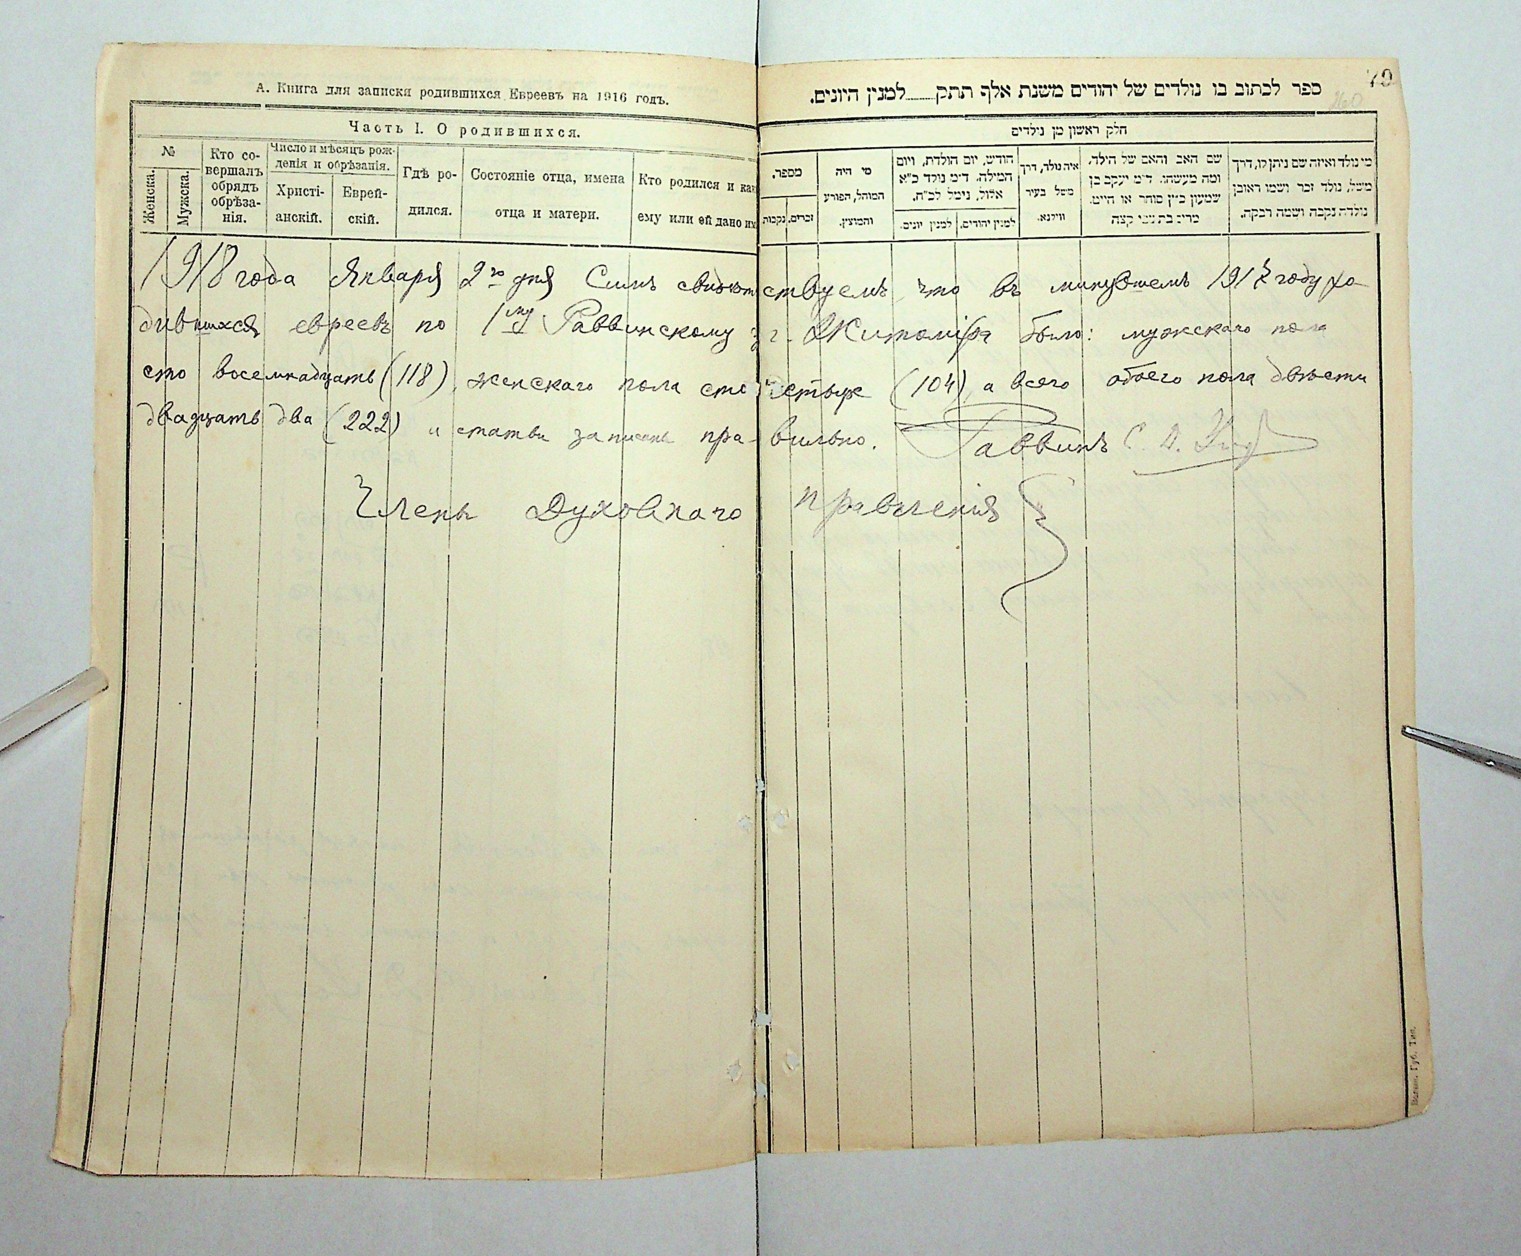 А. Книга для записки родившихся Евреевъ на 1916 годъ.
Часть I. О родившихся.
№
Женска.
Мужска.
Кто со-
вершалъ
обрядъ
обрѣза-
нія.
Число и мѣсяцъ рож-
денія и обрѣзанія.
Христі-
анскій.
Еврей-
скій.
Гдѣ ро-
дился.
Состояніе отца, имена
отца и матери.
Кто родился и как
ему или ей дано им
70
160
ספר לכתוב בו נולדים של יהודים משנת אלף תתק למנין היונים.
חלק ראשון מן נולדים
מי נולד ואיזה שם ניתן לו, דרך
משל, נולד זכר ושמו ראובן
נולדה נקבה ושמה רבקה.
שם האב והאם של הילד,
ומה מעשהו. ד״מ יעקב בן
שמעון כ״ץ סוחר או חייט.
איה נולד, דרך
משל בעיר
ווילנא.
חודש, יום הולדת, ויום
המילה. ד״מ נולד כ״א
אלול, נימל לכ״ח.
למנין יהודים.
למנין יונים.
מי היה
המוהל, הפורע
והמוצץ.
מספר.
זכרים.
נקבות
1918 года Января 2го дня Симъ свидѣтельствуемъ что въ минувшемъ 1917 году ро-
дившихся евреевъ по 1му Раввинскому г. Житоміра было: мужскаго пола
сто восемнадцать (118), женскаго пола сто четыре (104), а всего обоего пола двѣсти
двадцать два (222) и статьи записаны пра-вильно. Раввинъ С. Д.
Члены Духовнаго правленія
Волын. Губ. Тип.